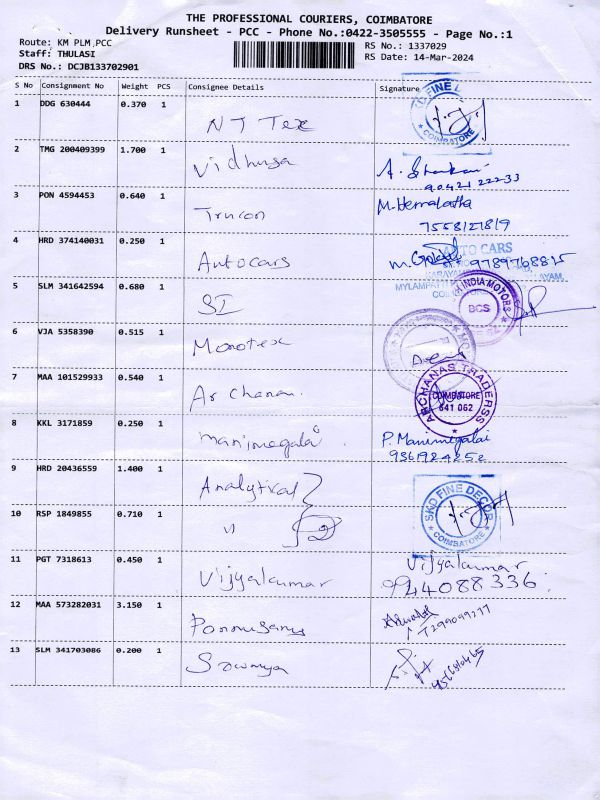 THE PROFESSIONAL COURIERS, COIMBATORE
Delivery Runsheet - PCC - Phone No.:0422-3505555 - Page No.:1
Route: KM PLM,PCC
RS No.: 1337029
Staff: THULASI
RS Date: 14-Mar-2024
DRS No.: DCJB133702901
S No Consignment No Weight PCS Consignee Details Signature
1 DDG 630444 0.370 1
FINE
COIMBATORE
NT Tex
2 TMG 200409399 1.700 1
Vidhuga
90421 22233
3 PON 4594453 0.640 1
M. Hemalatha
Trucon
7558121819
4 HRD 374140031 0.250 1
AUTO CARS
Autocars
9789768815
5 SLM 341642594 0.680 1
SI
INDIA MOTORS
BCS
6 VJA 5358390 0.515 1
Monotex
7 MAA 101529933 0.540 1
Archanan.
ARCHANAS TRADERSS
COIMBATORE
641 062
8 KKL 3171859 0.250 1
manimegalai
P. Manimegalai
9361924252
9 HRD 20436559 1.400 1
Analytical
SKD FINE DECOR
COIMBATORE
10 RSP 1849855 0.710 1
"
11 PGT 7318613 0.450 1
Vijyakumar
Vijyakumar
9944088336.
12 MAA 573282031 3.150 1
Ponnusamy
13 SLM 341703086 0.200 1
Sowmya